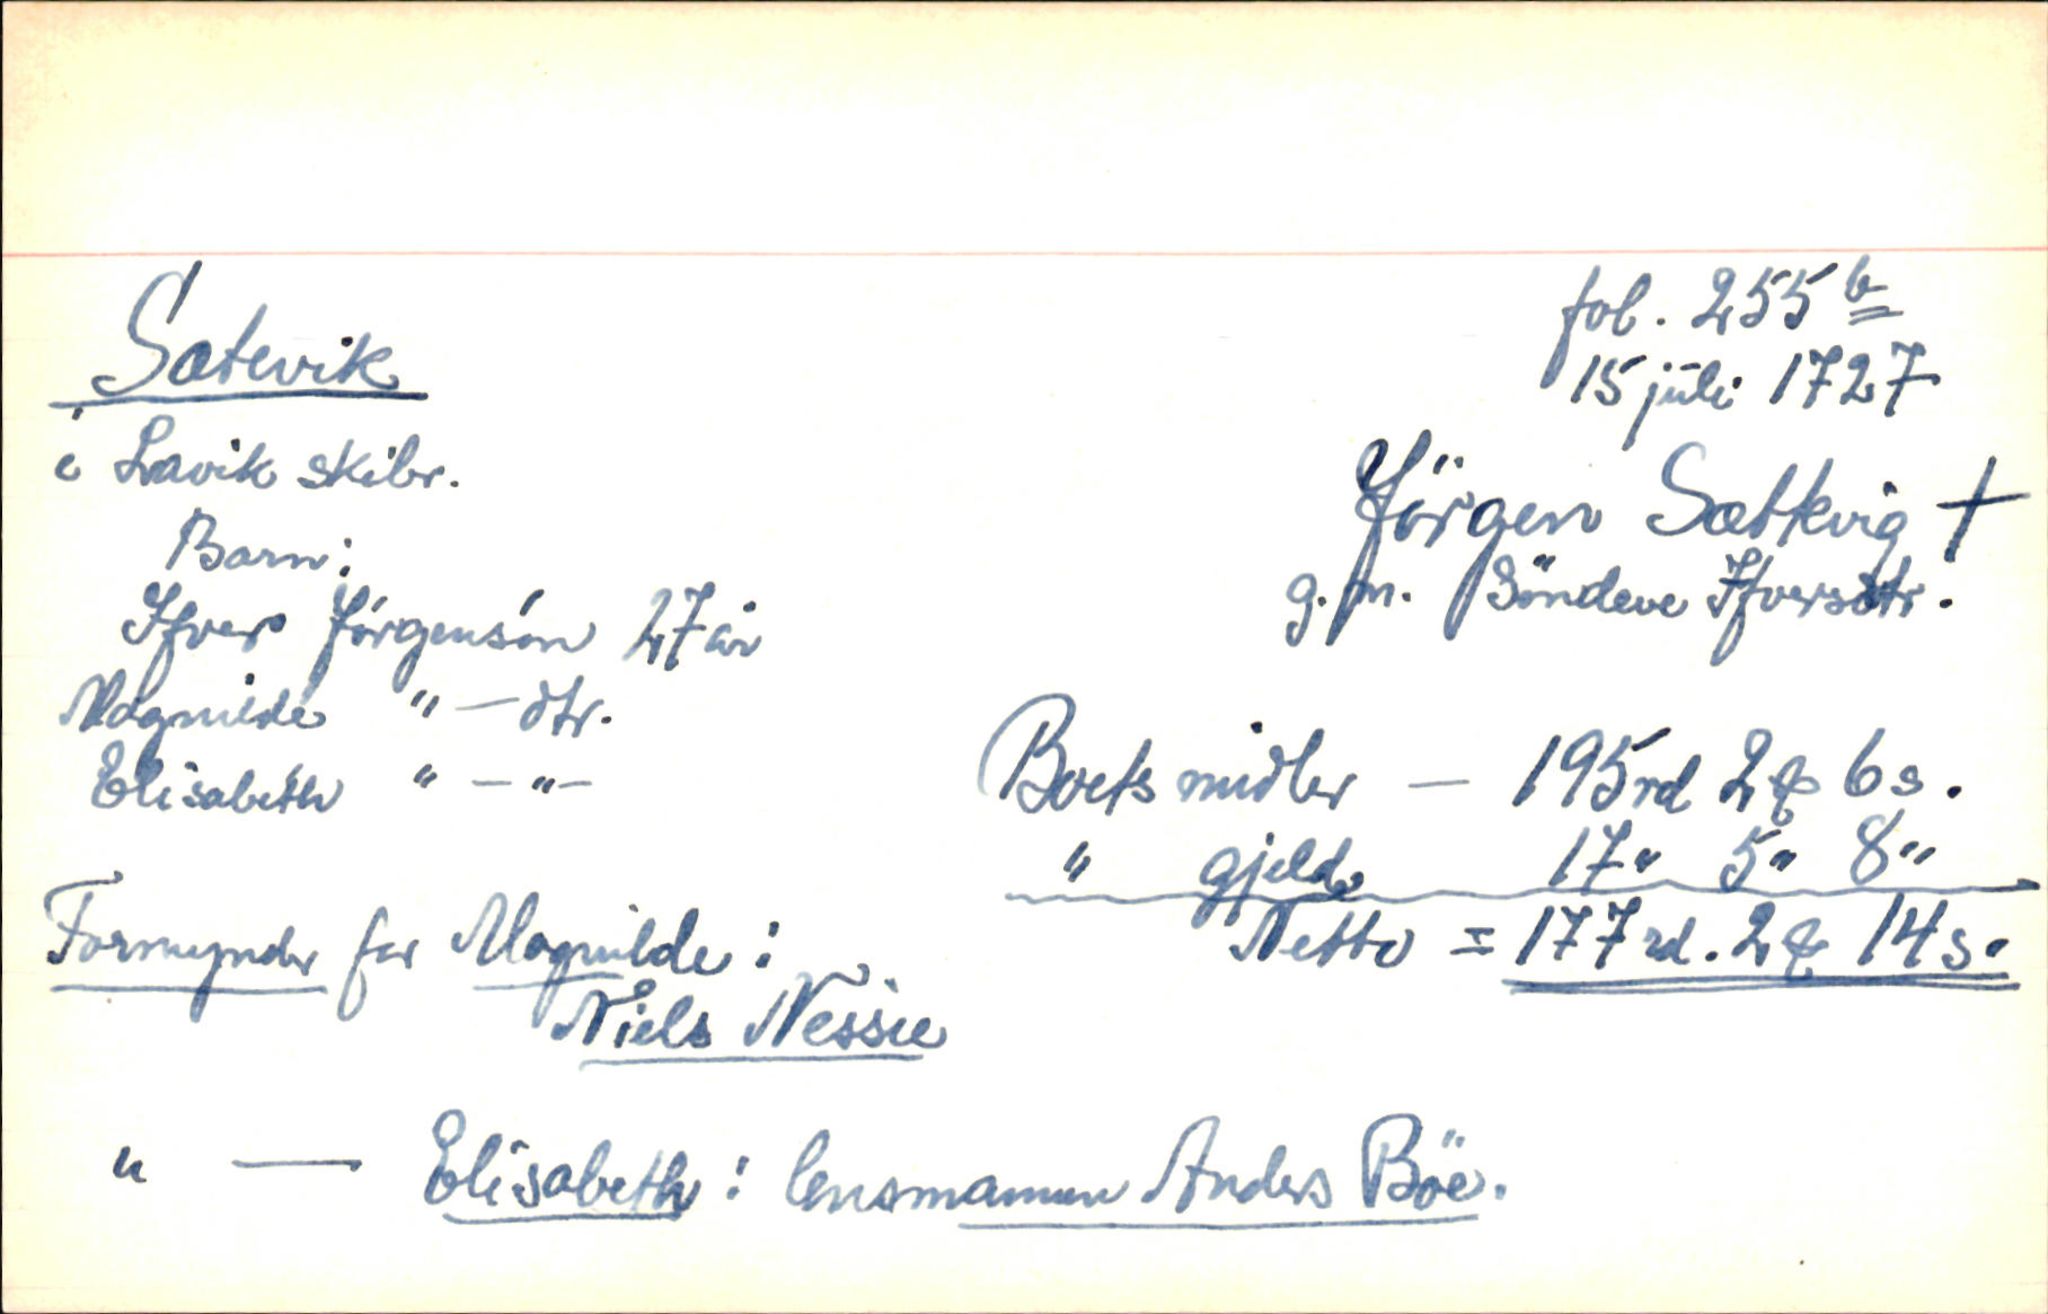 Sætevik
i Lavik skibr.
Barn:
Ifver Jörgensön 27 år
Magnilde " — dtr.
Elisabeth " — " —
Formynder for Magnilde:
Niels Nessie
" — Elisabeth: lensmannen Anders Böe.
fol. 255 b
15 juli 1727
Jörgen Sætkvig †
g. m. Söndeve Ifversdtr.
Boets midler — 195 rd 2 ꝭ 6 s.
" gjeld 17 " 5 " 8 "
Netto = 177 rd. 2 ꝭ 14 s.